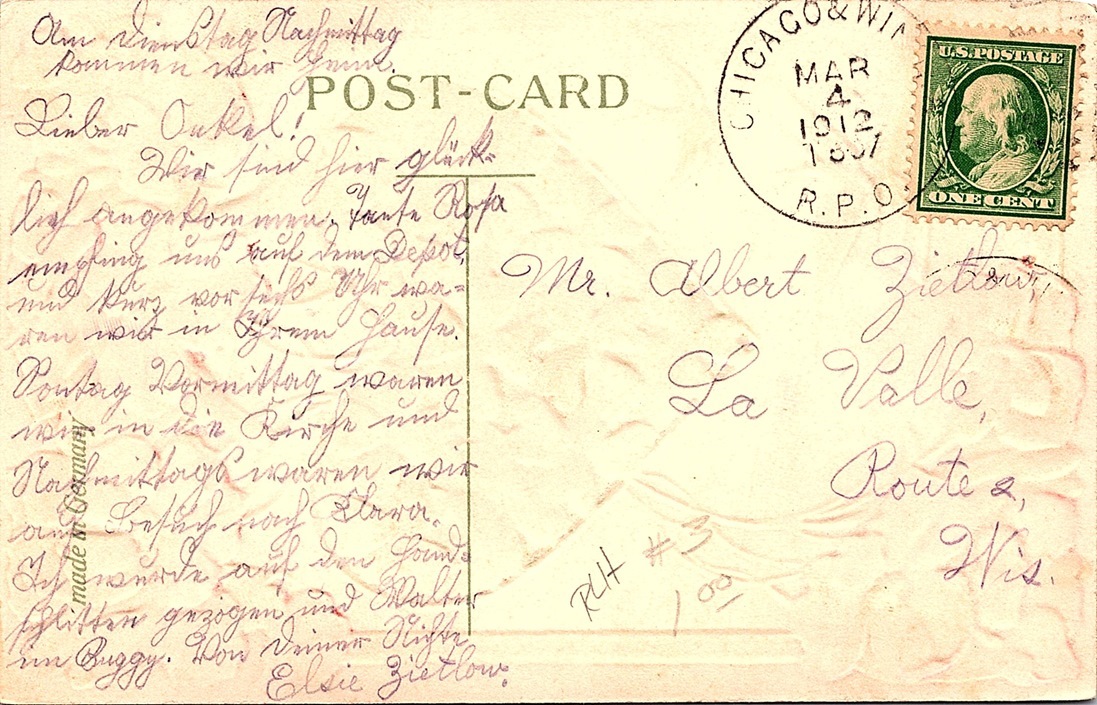 Am Dienstag Nachmittag
kommen wir heim.
POST-CARD
Lieber Onkel!
Wir sind hier glück-
lich angekommen. Tante Rosa
empfing uns auf dem Depot,
und kurz vor sechs Uhr wa-
ren wir in Ihrem Hause.
Sontag Vormittag waren
wir in die Kirche und
Nachmittags waren wir
auf Besuch nach Klara.
Ich wurde auf den Hand-
schlitten gezogen und Walter
im Buggy. Von Deiner Nichte
Elsie Zietlow.
made in Germany
CHICAGO & WIN
MAR
4
1912
R.P.O.
U.S. POSTAGE
ONE CENT
Mr. Albert Zietlow
La Valle,
Route 2,
Wis.
RLH #3
1 00